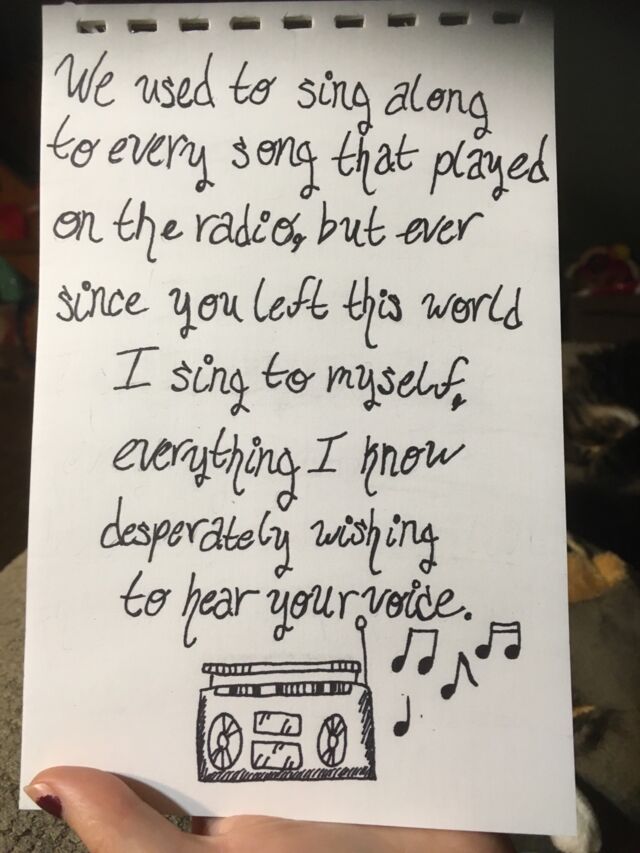 We used to sing along
to every song that played
on the radio, but ever
since you left this world
I sing to myself,
everything I know
desperately wishing
to hear your voice.